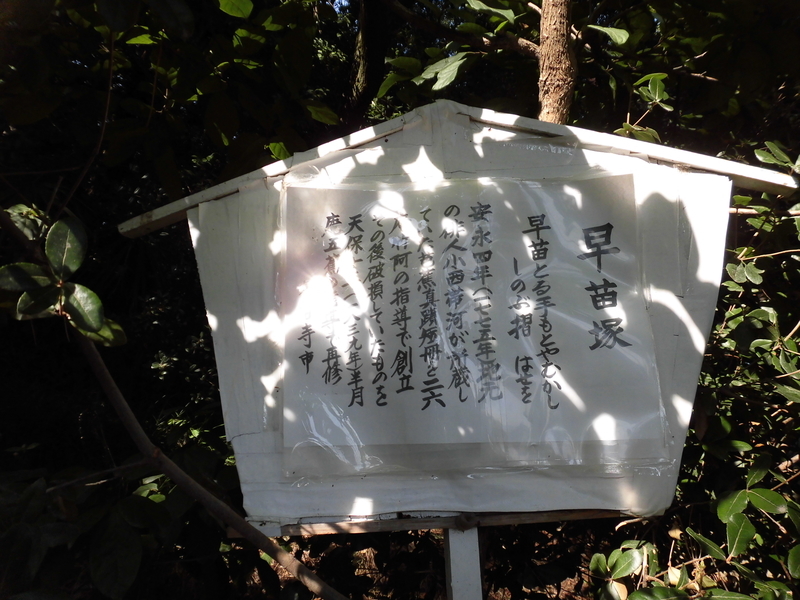 早苗塚
早苗とる手もとやむかし
しのぶ摺 はせを
安永四年(一七七五年)地元
の俳人小西帯河が所蔵し
ていた芭蕉真蹟短冊を二六
の指導で創立
その後破損していたものを
天保十 年半月
再修
寺市